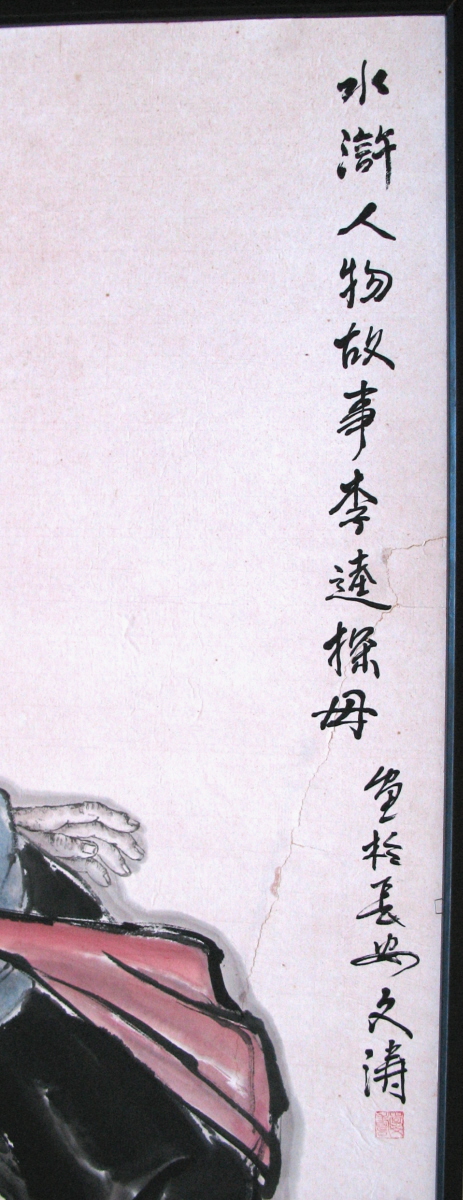 水浒人物故事李逵探母
画於长安文涛